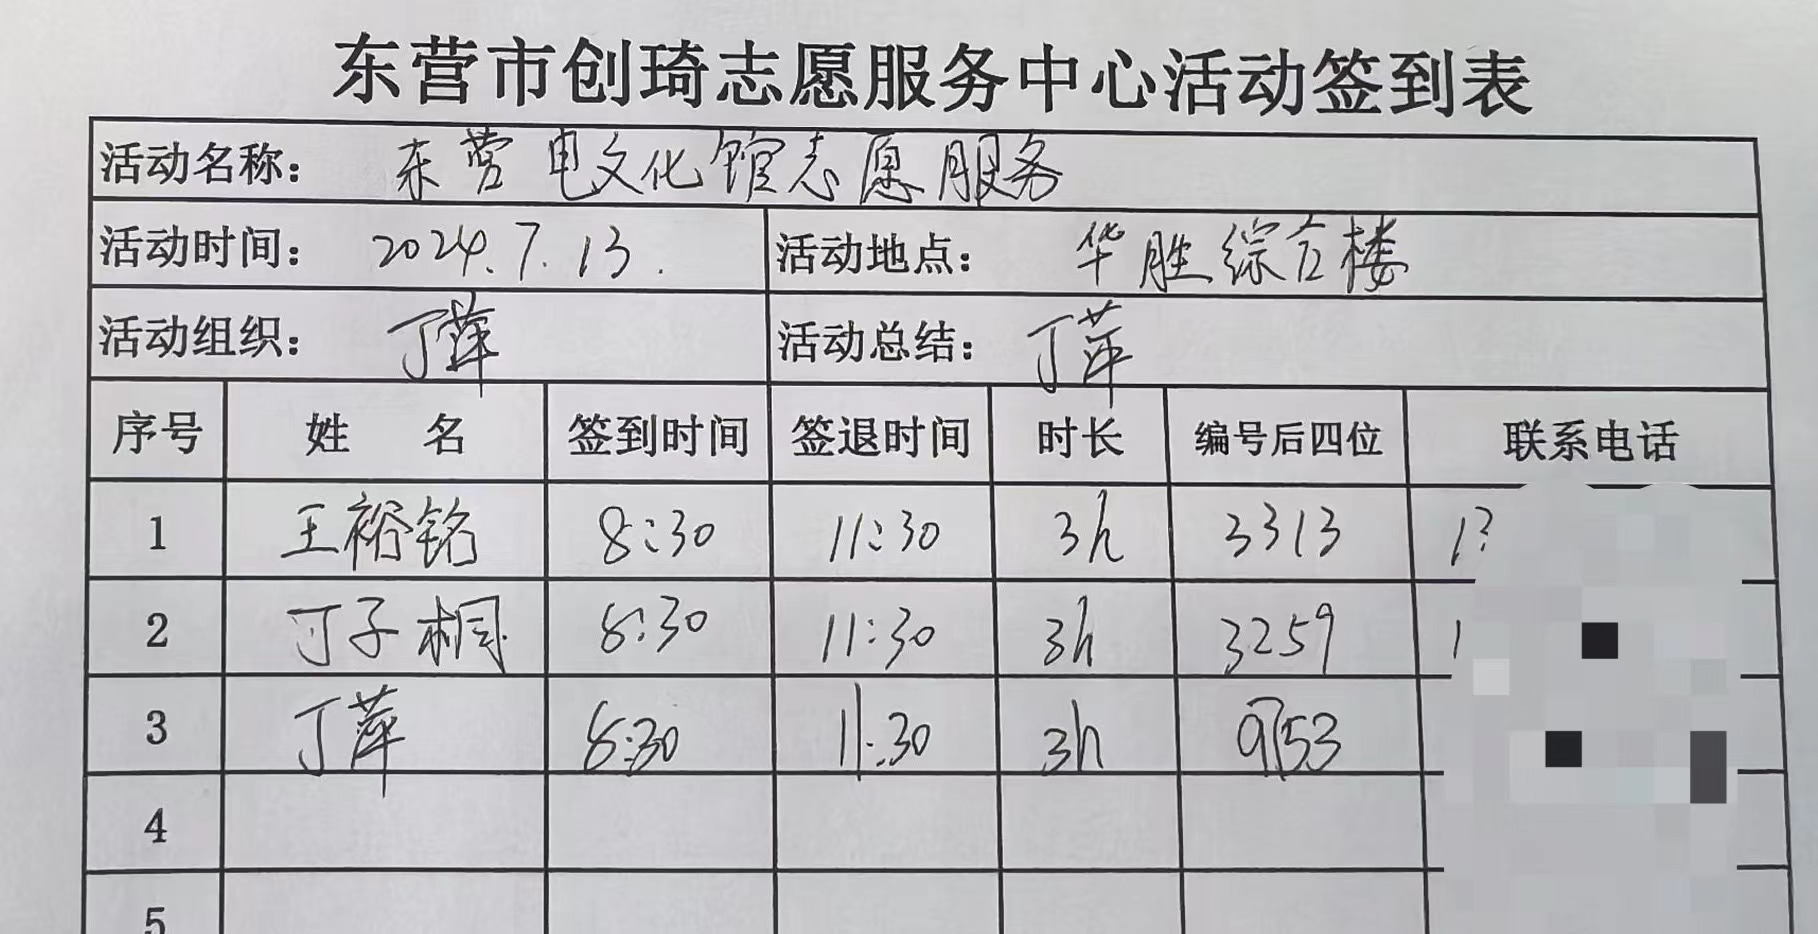 东营市创琦志愿服务中心活动签到表
活动名称： 东营电文化馆志愿服务
活动时间： 2024.7.13. 活动地点： 华胜综合楼
活动组织： 丁萍 活动总结： 丁萍
序号 姓 名 签到时间 签退时间 时长 编号后四位 联系电话
1 王裕铭 8:30 11:30 3h 3313 13
2 丁子桐 8:30 11:30 3h 3259 1
3 丁萍 8:30 11:30 3h 9753
4
5